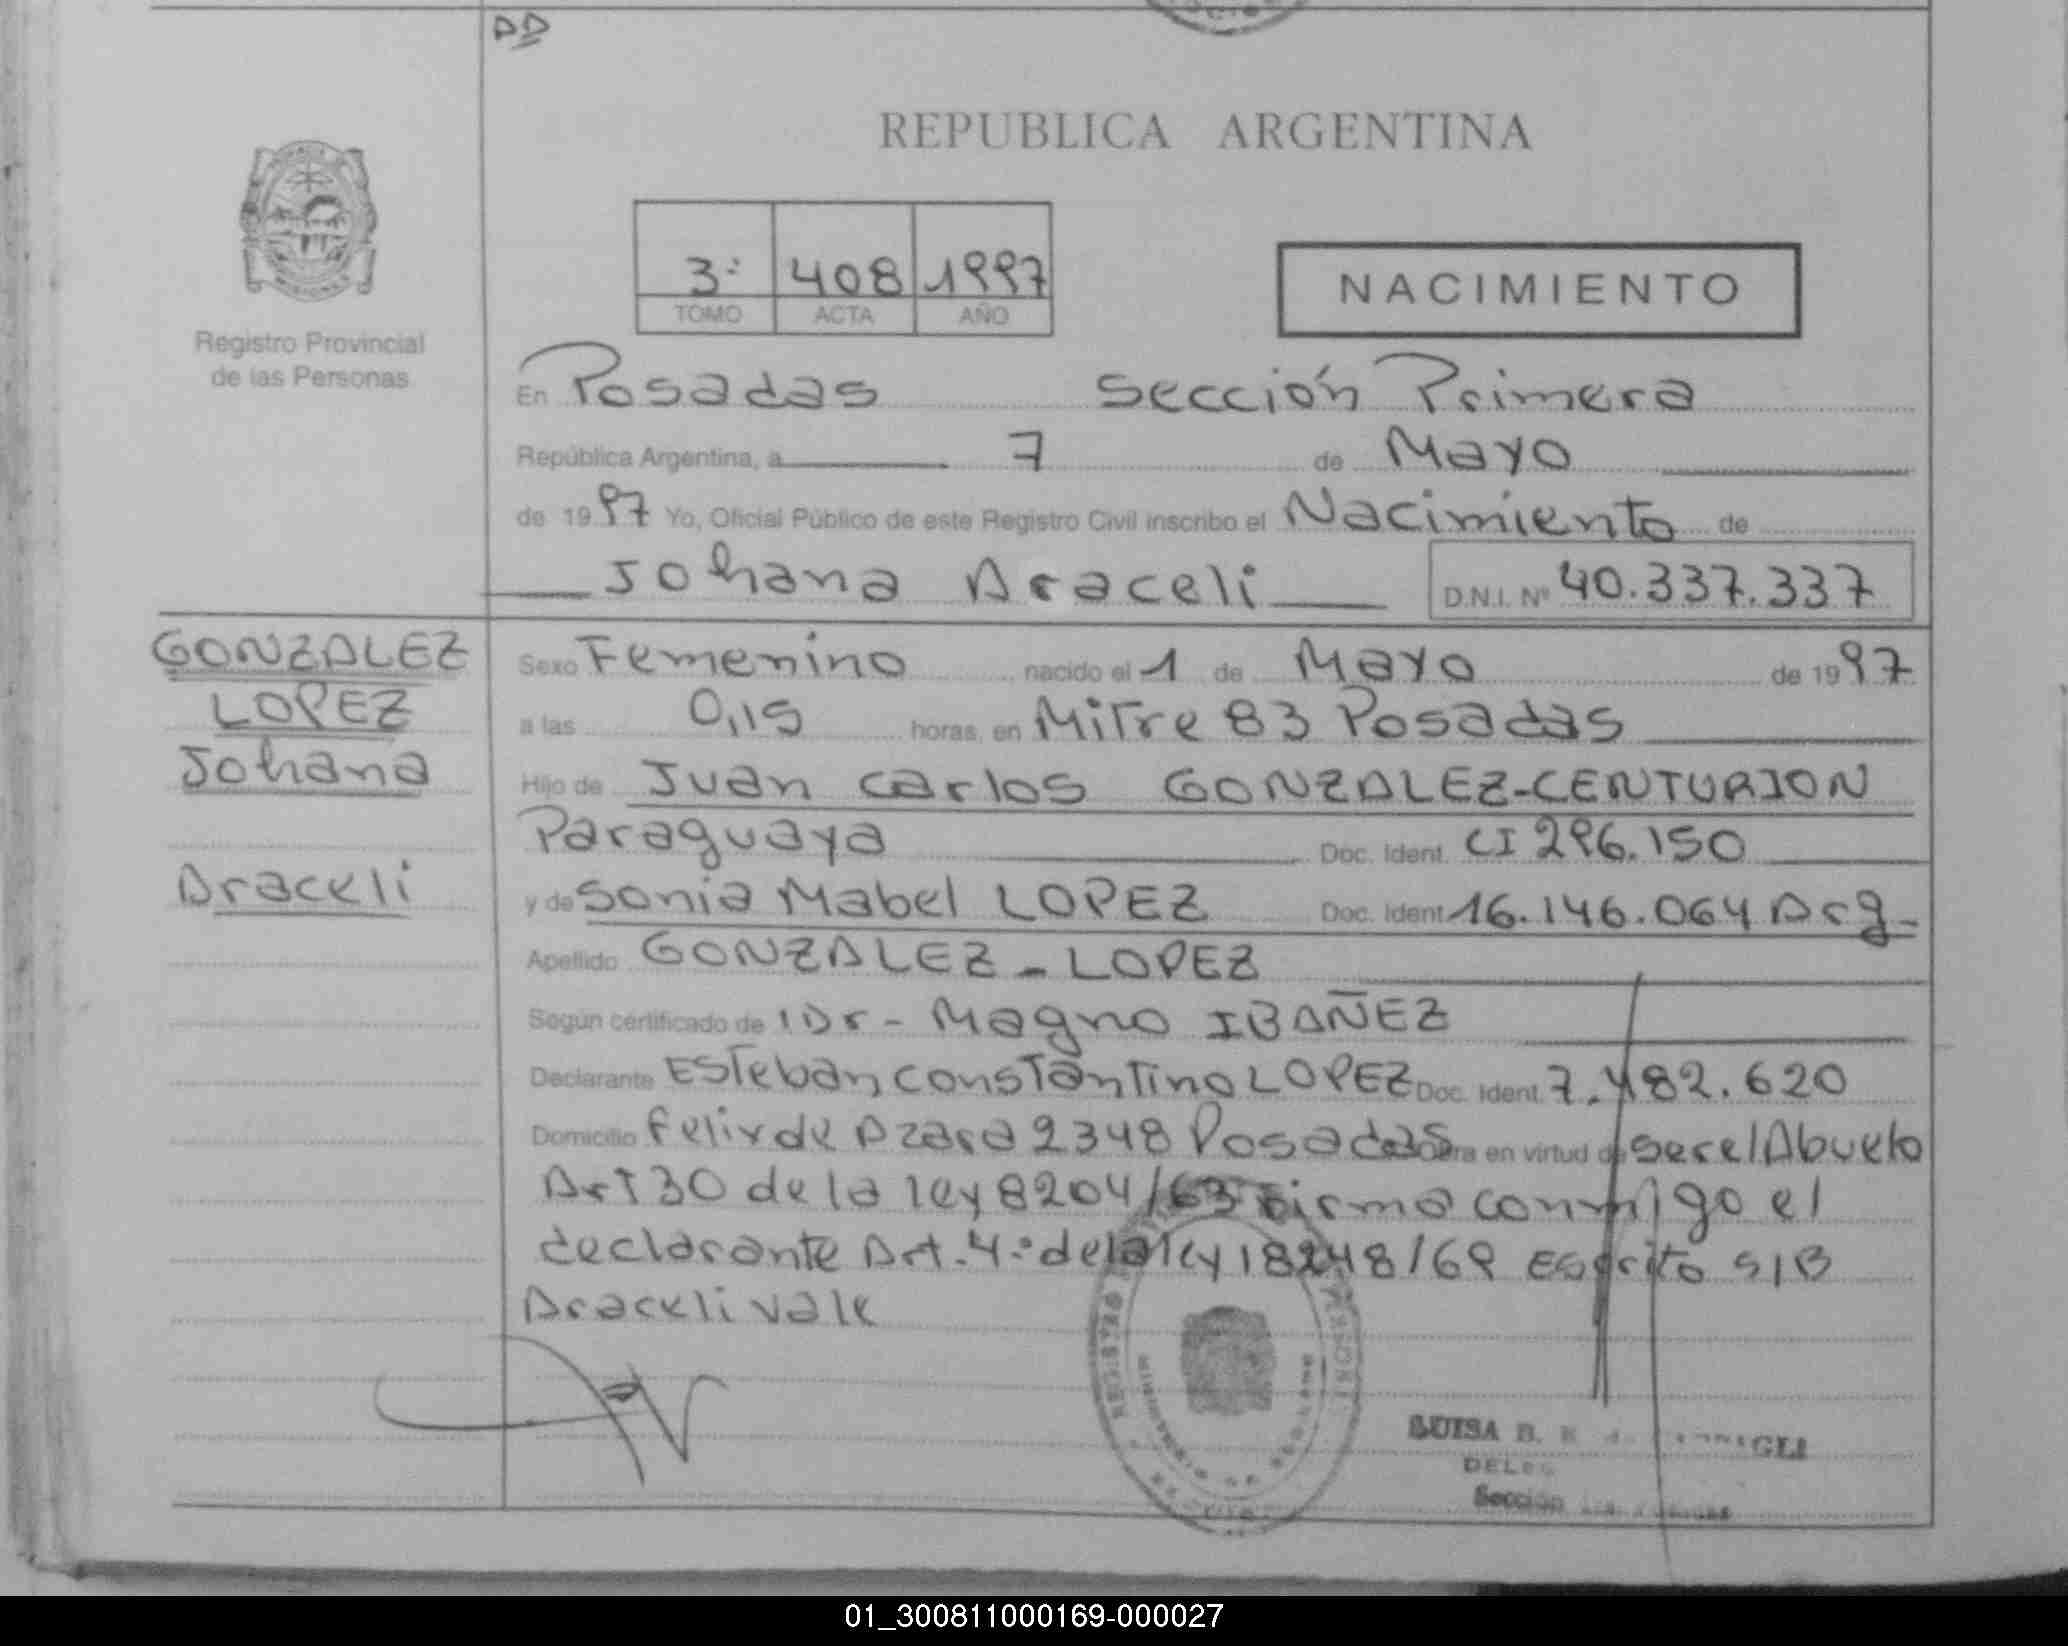 DD
REPUBLICA ARGENTINA
3º 408 1997
TOMO ACTA AÑO
NACIMIENTO
Registro Provincial
de las Personas
En Posadas Sección Primera
República Argentina, a 7 de Mayo
de 1997 Yo, Oficial Público de este Registro Civil inscribo el Nacimiento de
Johana Araceli D.N.I. Nº 40.337.337
GONZALEZ
LOPEZ
Johana
Araceli
Sexo Femenino nacido el 1 de Mayo de 1997
a las 0,15 horas, en Mitre 83 Posadas
Hijo de Juan Carlos GONZALEZ-CENTURION
Paraguaya Doc. Ident. CI 296.150
y de Sonia Mabel LOPEZ Doc. Ident. 16.146.064 Arg-
Apellido GONZALEZ - LOPEZ
Según certificado de Dr- Magno IBAÑEZ
Declarante Esteban Constantino LOPEZ Doc. Ident. 7.482.620
Domicilio Felix de Azara 2348 Posadas Obra en virtud de Ser el Abuelo
Art 30 de la ley 8204/63 Firma conmigo el
declarante Art. 4º de la ley 18248/69 Escrito S/B
Araceli vale
LUISA B.
Sección
01_300811000169-000027